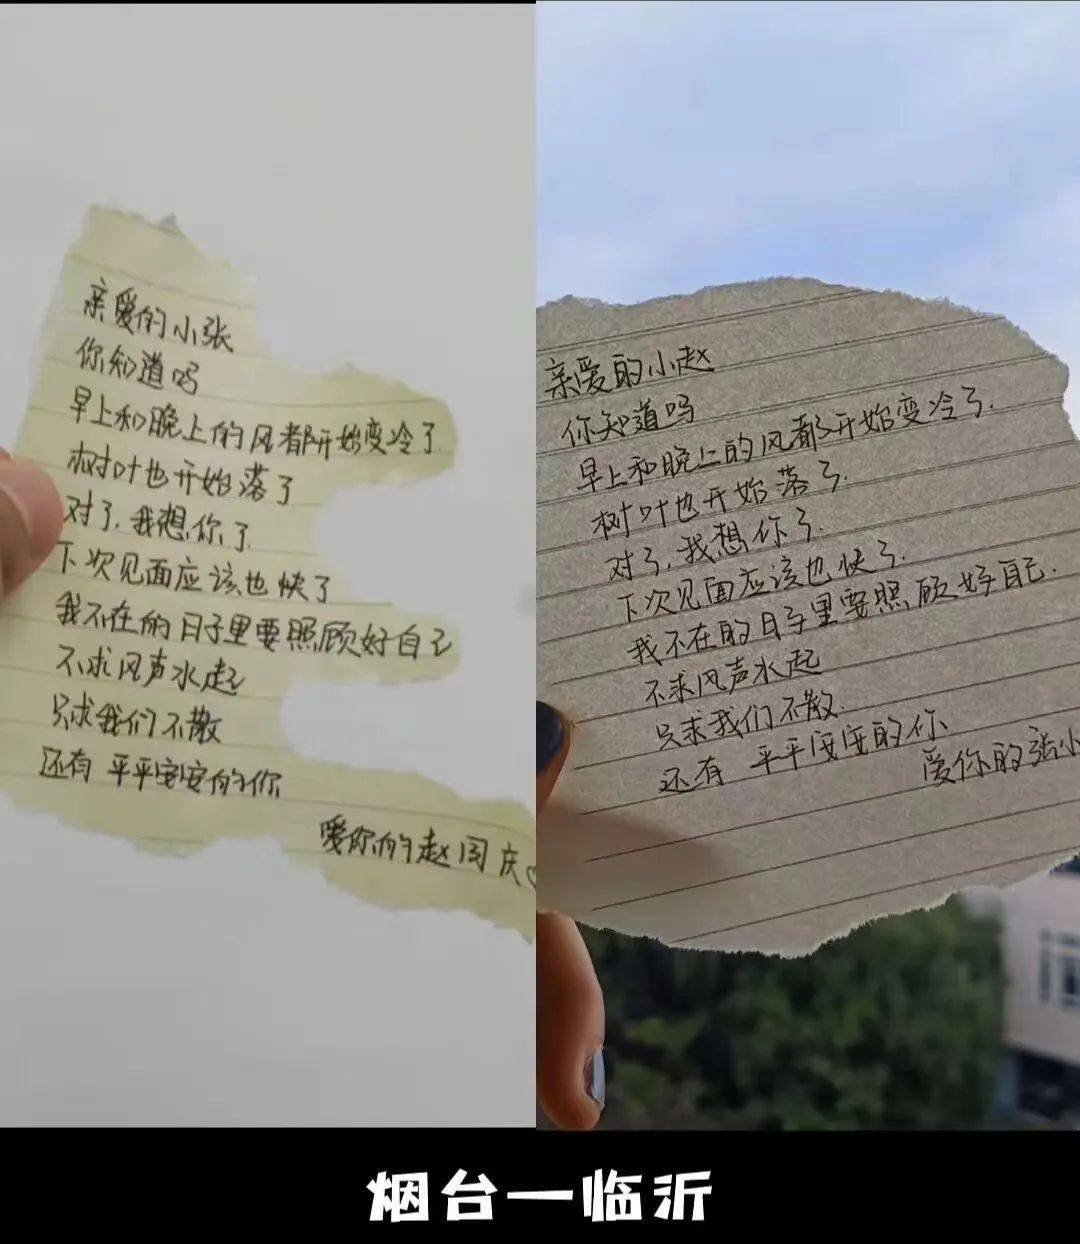 亲爱的小张
你知道吗
早上和晚上的风都开始变冷了
树叶也开始落了
对了,我想你了
下次见面应该也快了
我不在的日子里要照顾好自己
不求风声水起
只求我们不散
还有 平平安安的你
爱你的赵国庆♡
亲爱的小赵
你知道吗
早上和晚上的风都开始变冷了.
树叶也开始落了.
对了,我想你了.
下次见面应该也快了.
我不在的日子里要照顾好自己.
不求风声水起
只求我们不散.
还有 平平安安的你
爱你的张小
烟台—临沂